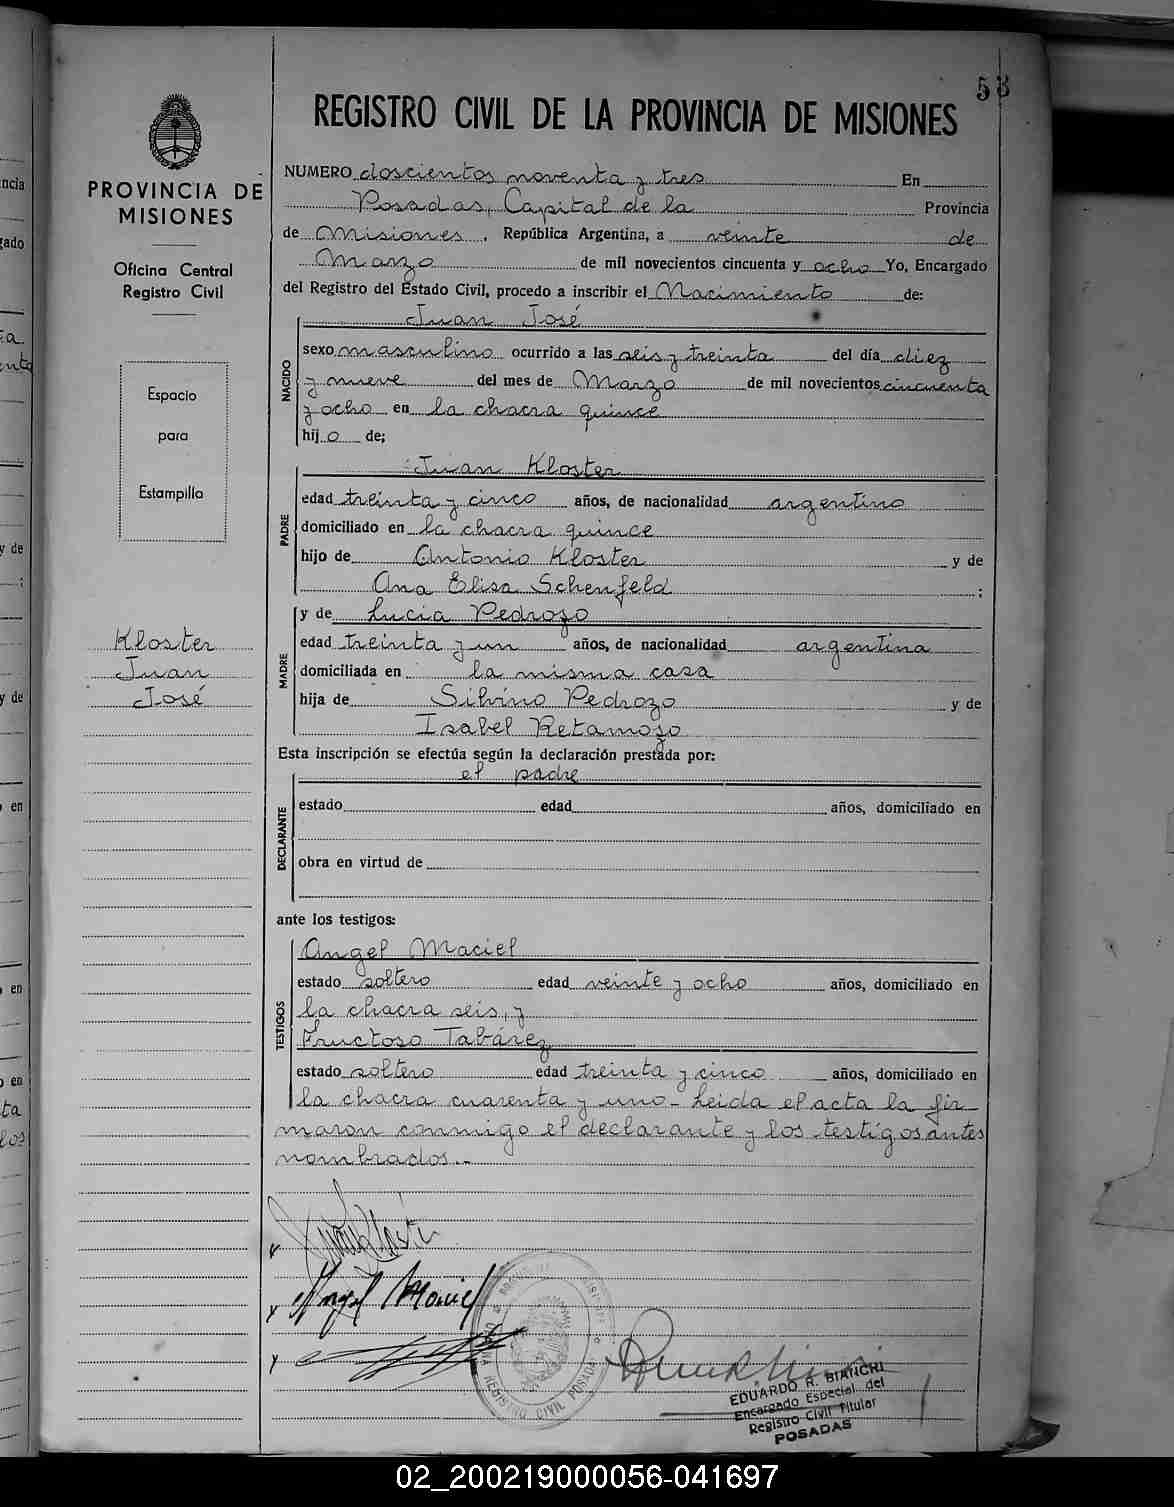 53
REGISTRO CIVIL DE LA PROVINCIA DE MISIONES
PROVINCIA DE
MISIONES
Oficina Central
Registro Civil
Espacio
para
Estampilla
Kloster
Juan
José
NUMERO doscientos noventa y tres En
Posadas, Capital de la Provincia
de Misiones, República Argentina, a veinte de
Marzo de mil novecientos cincuenta y ocho Yo, Encargado
del Registro del Estado Civil, procedo a inscribir el Nacimiento de:
NACIDO
Juan José
sexo masculino ocurrido a las seis y treinta del día diez
y nueve del mes de Marzo de mil novecientos cincuenta
y ocho en la chacra quince
hijo de;
PADRE
Juan Kloster
edad treinta y cinco años, de nacionalidad argentino
domiciliado en la chacra quince
hijo de Antonio Kloster y de
Ana Elisa Schenfeld ;
MADRE
y de Lucia Pedrozo
edad treinta y un años, de nacionalidad argentina
domiciliada en la misma casa
hija de Silvino Pedrozo y de
Isabel Retamozo
Esta inscripción se efectúa según la declaración prestada por:
DECLARANTE
el padre
estado edad años, domiciliado en
obra en virtud de
ante los testigos:
TESTIGOS
Angel Maciel
estado soltero edad veinte y ocho años, domiciliado en
la chacra seis, y
Fructoso Tabárez
estado soltero edad treinta y cinco años, domiciliado en
la chacra cuarenta y uno- Leida el acta la fir-
maron conmigo el declarante y los testigos antes
nombrados.-
Angel Maciel
REGISTRO CIVIL POSADAS
EDUARDO R. BIANCHI
Encargado Especial del
Registro Civil Titular
POSADAS
02_200219000056-041697